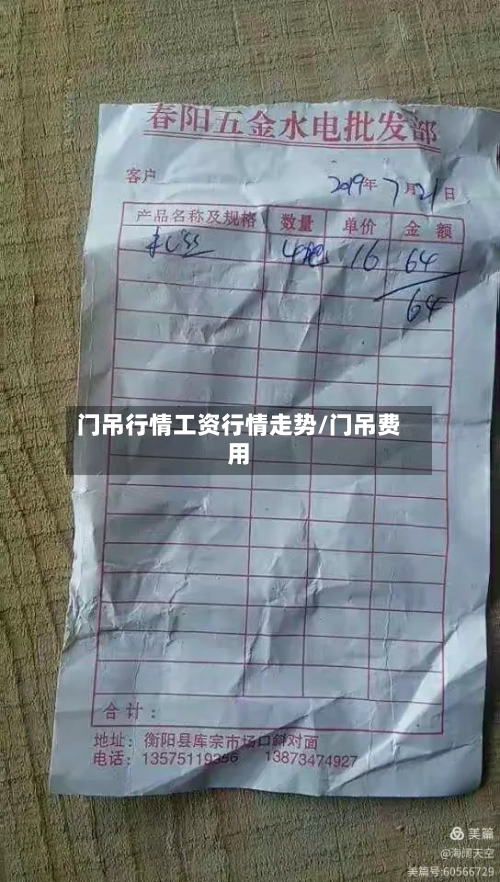 春阳五金水电批发部
客户
2019年7月21日
产品名称及规格 数量 单价 金额
扎丝 4把 16 64
64
门吊行情工资行情走势/门吊费
用
合计:
地址:衡阳县库宗市场口斜对面
电话:13575119386 13873474927
美篇
@海阔天空
美篇号:60566729